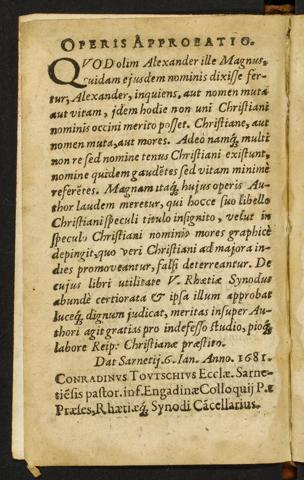 OPERIS APPROBATIO.
QVOD olim Alexander ille Magnus,
cuidam ejusdem nominis dixisse fer-
tur, Alexander, inquiens, aut nomen muta
aut vitam, jdem hodie non uni Christiani
nominis occini merito posset. Christiane, aut
nomen muta, aut mores. Adeò namq́; multi
non re sed nomine tenus Christiani existunt,
nomine quidem gaudẽtes sed vitam minimè
referẽtes. Magnam itaq́; hujus operis Au-
thor laudem meretur, qui hocce suo libello
Christiani speculi titulo insignito, velut in
speculo Christiani nominis mores graphicè
depingit, quo veri Christiani ad majora in-
dies promoveantur, falsi deterreantur. De
cujus libri utilitate V. Rhætiæ Synodus
abundè certiorata & ipsa illum approbat
luceq́; dignum judicat, meritas insuper Au-
thori agit gratias pro indefesso studio, pioq́;
labore Reip: Christianæ præstito.
Dat Sarnetij. 6. Ian. Anno. 1681.
CONRADINVS TOVTSCHIVS Ecclæ. Sarne-
tiẽsis pastor. inf. Engadinæ Colloquij P. t.
Præses, Rhætiæq́; Synodi Cãcellarius.